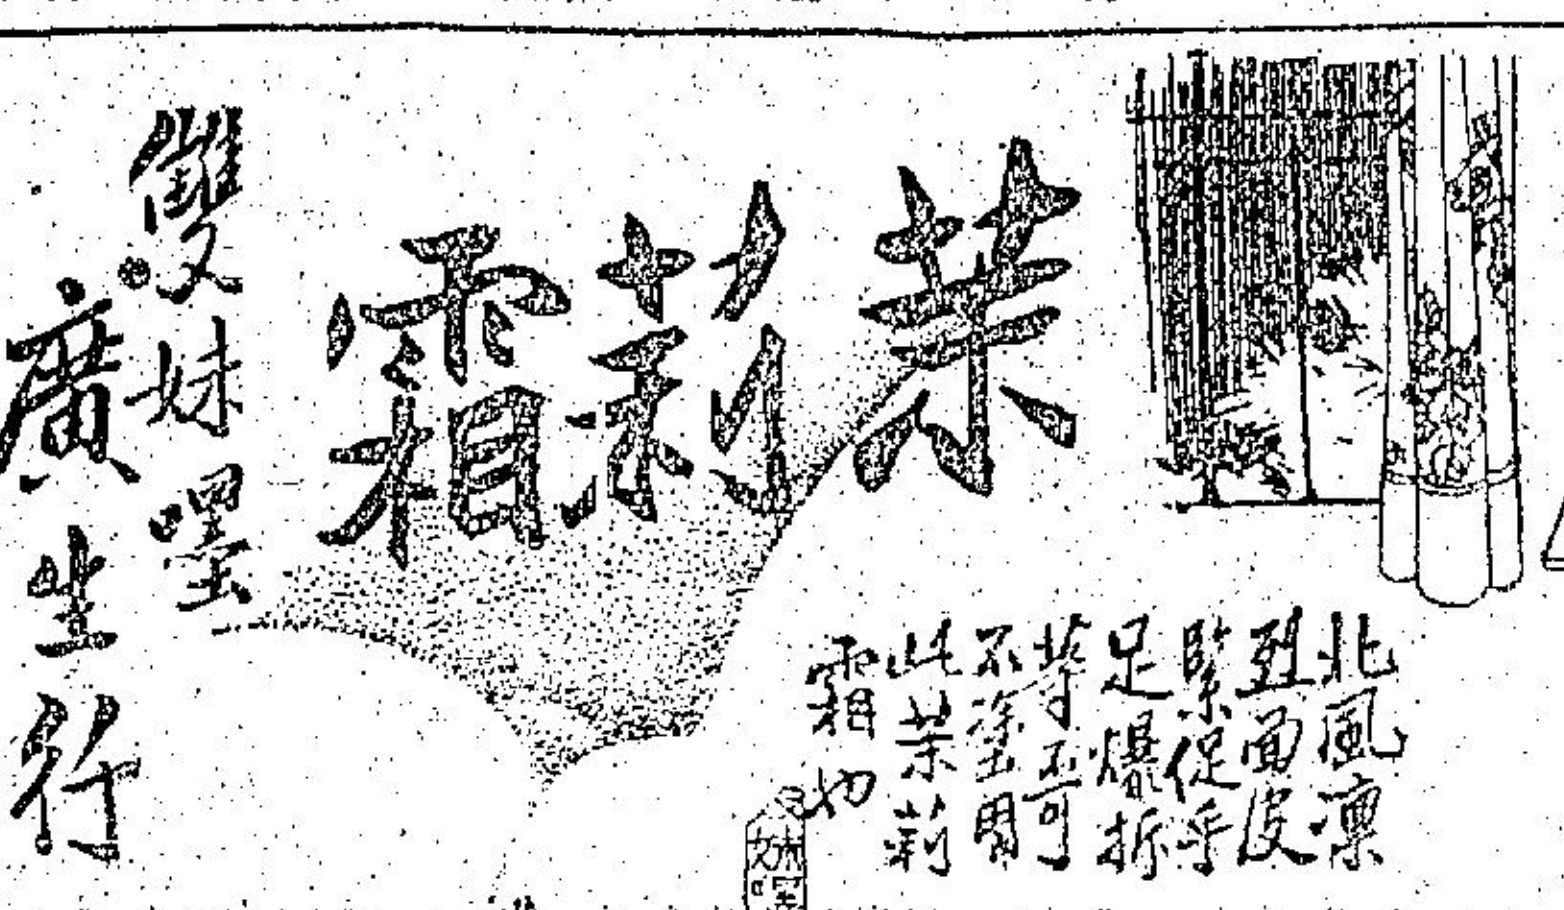 茉莉霜
雙妹嚜
廣生行
北風凜
烈面皮
緊促手
足爆拆
等不可
不塗用
此茉莉
霜也
妹嚜